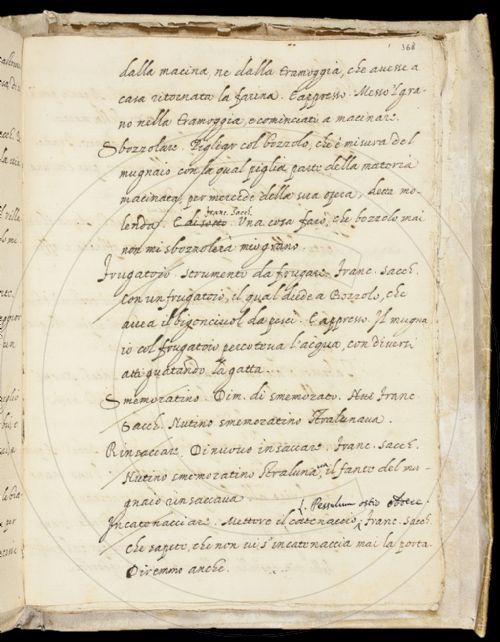 368
dalla macina, ne dalla tramoggia, che avesse a
casa ritornata la farina. E appresso. Messo 'l gra-
no nella tramoggia, e cominciato a macinare.
Sbozzolare. Pigliar col bozzolo, che è misura del
mugnaio con la qual piglia parte della materia
macinata, per mercede della sua opera, detta mo-
lenda. E di sotto. Franc. Sacch. Una cosa farò, che bozzolo mai
non mi sbozzolerà mio grano.
Frugatoio. Strumento da frugare. Franc. Sacch.
Con un frugatoio, il qual diede a Bozzolo, che
avea il bigonciuol da pesci. E appresso. Il mugna-
io col frugatoio percoteva l'acqua, con diversi
atti guatando la gatta.
Smemoratino. Dim. di smemorato. Franc.
Sacch. Nutino smemoratino stralunava.
Rinsaccare. Di nuovo insaccare. Franc. Sacch.
Nutino smemoratino stralunava, il fante del mu-
gnaio rinsaccava.
Pessulum ostio
Incatenacciare. Mettere il catenaccio, Franc. Sacch.
che sapete, che non vi s'incatenaccia mai la porta.
Diremmo anche.